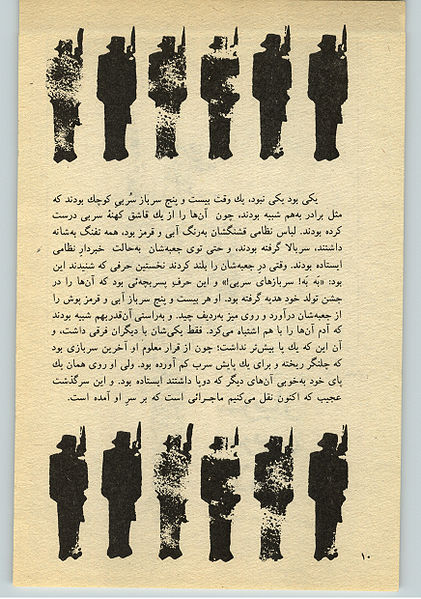 یکی بود یکی نبود، یك وقت بیست و پنج سرباز سُربی کوچك بودند که
مثل برادر به‌هم شبیه بودند، چون آن‌ها را از یك قاشق کهنهٔ سربی درست
کرده بودند. لباس نظامی قشنگشان به‌رنگ آبی و قرمز بود، همه تفنگ به‌شانه
داشتند، سربالا گرفته بودند، و حتی توی جعبه‌شان به‌حالت خبردارِ نظامی
ایستاده بودند. وقتی درِ جعبه‌شان را بلند کردند نخستین حرفی که شنیدند این
بود: «به به! سربازهای سربی!» و این حرفِ پسربچه‌ئی بود که آن‌ها را در
جشن تولد خود هدیه گرفته بود. او هر بیست و پنج سرباز آبی و قرمز پوش را
از جعبه‌شان درآورد و روی میز به‌ردیف چید، و به‌راستی آن‌قدر بهم شبیه بودند
که آدم آن‌ها را با هم اشتباه می‌کرد. فقط یکی‌شان با دیگران فرقی داشت، و
آن این که یك پا بیش‌تر نداشت؛ چون از قرار معلوم او آخرین سربازی بود
که چلنگر ریخته و برای یك پایش سرب کم آورده بود. ولی او روی همان یك
پای خود به‌خوبی آن‌های دیگر که دوپا داشتند ایستاده بود. و این سرگذشت
عجیب که اکنون نقل می‌کنیم ماجرائی است که بر سرِ او آمده است.
۱۰